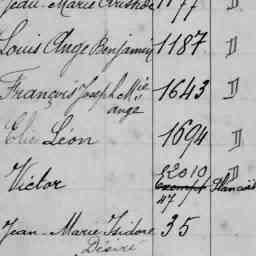 Jean-Marie Aristide 1177 D
Louis Ange Benjamin 1187 D
François Joseph Mie 1643 D
ange
Elie Léon 1694 D
Victor 22010 D
Exempt
47
Jean-Marie Isidore 35
Désiré